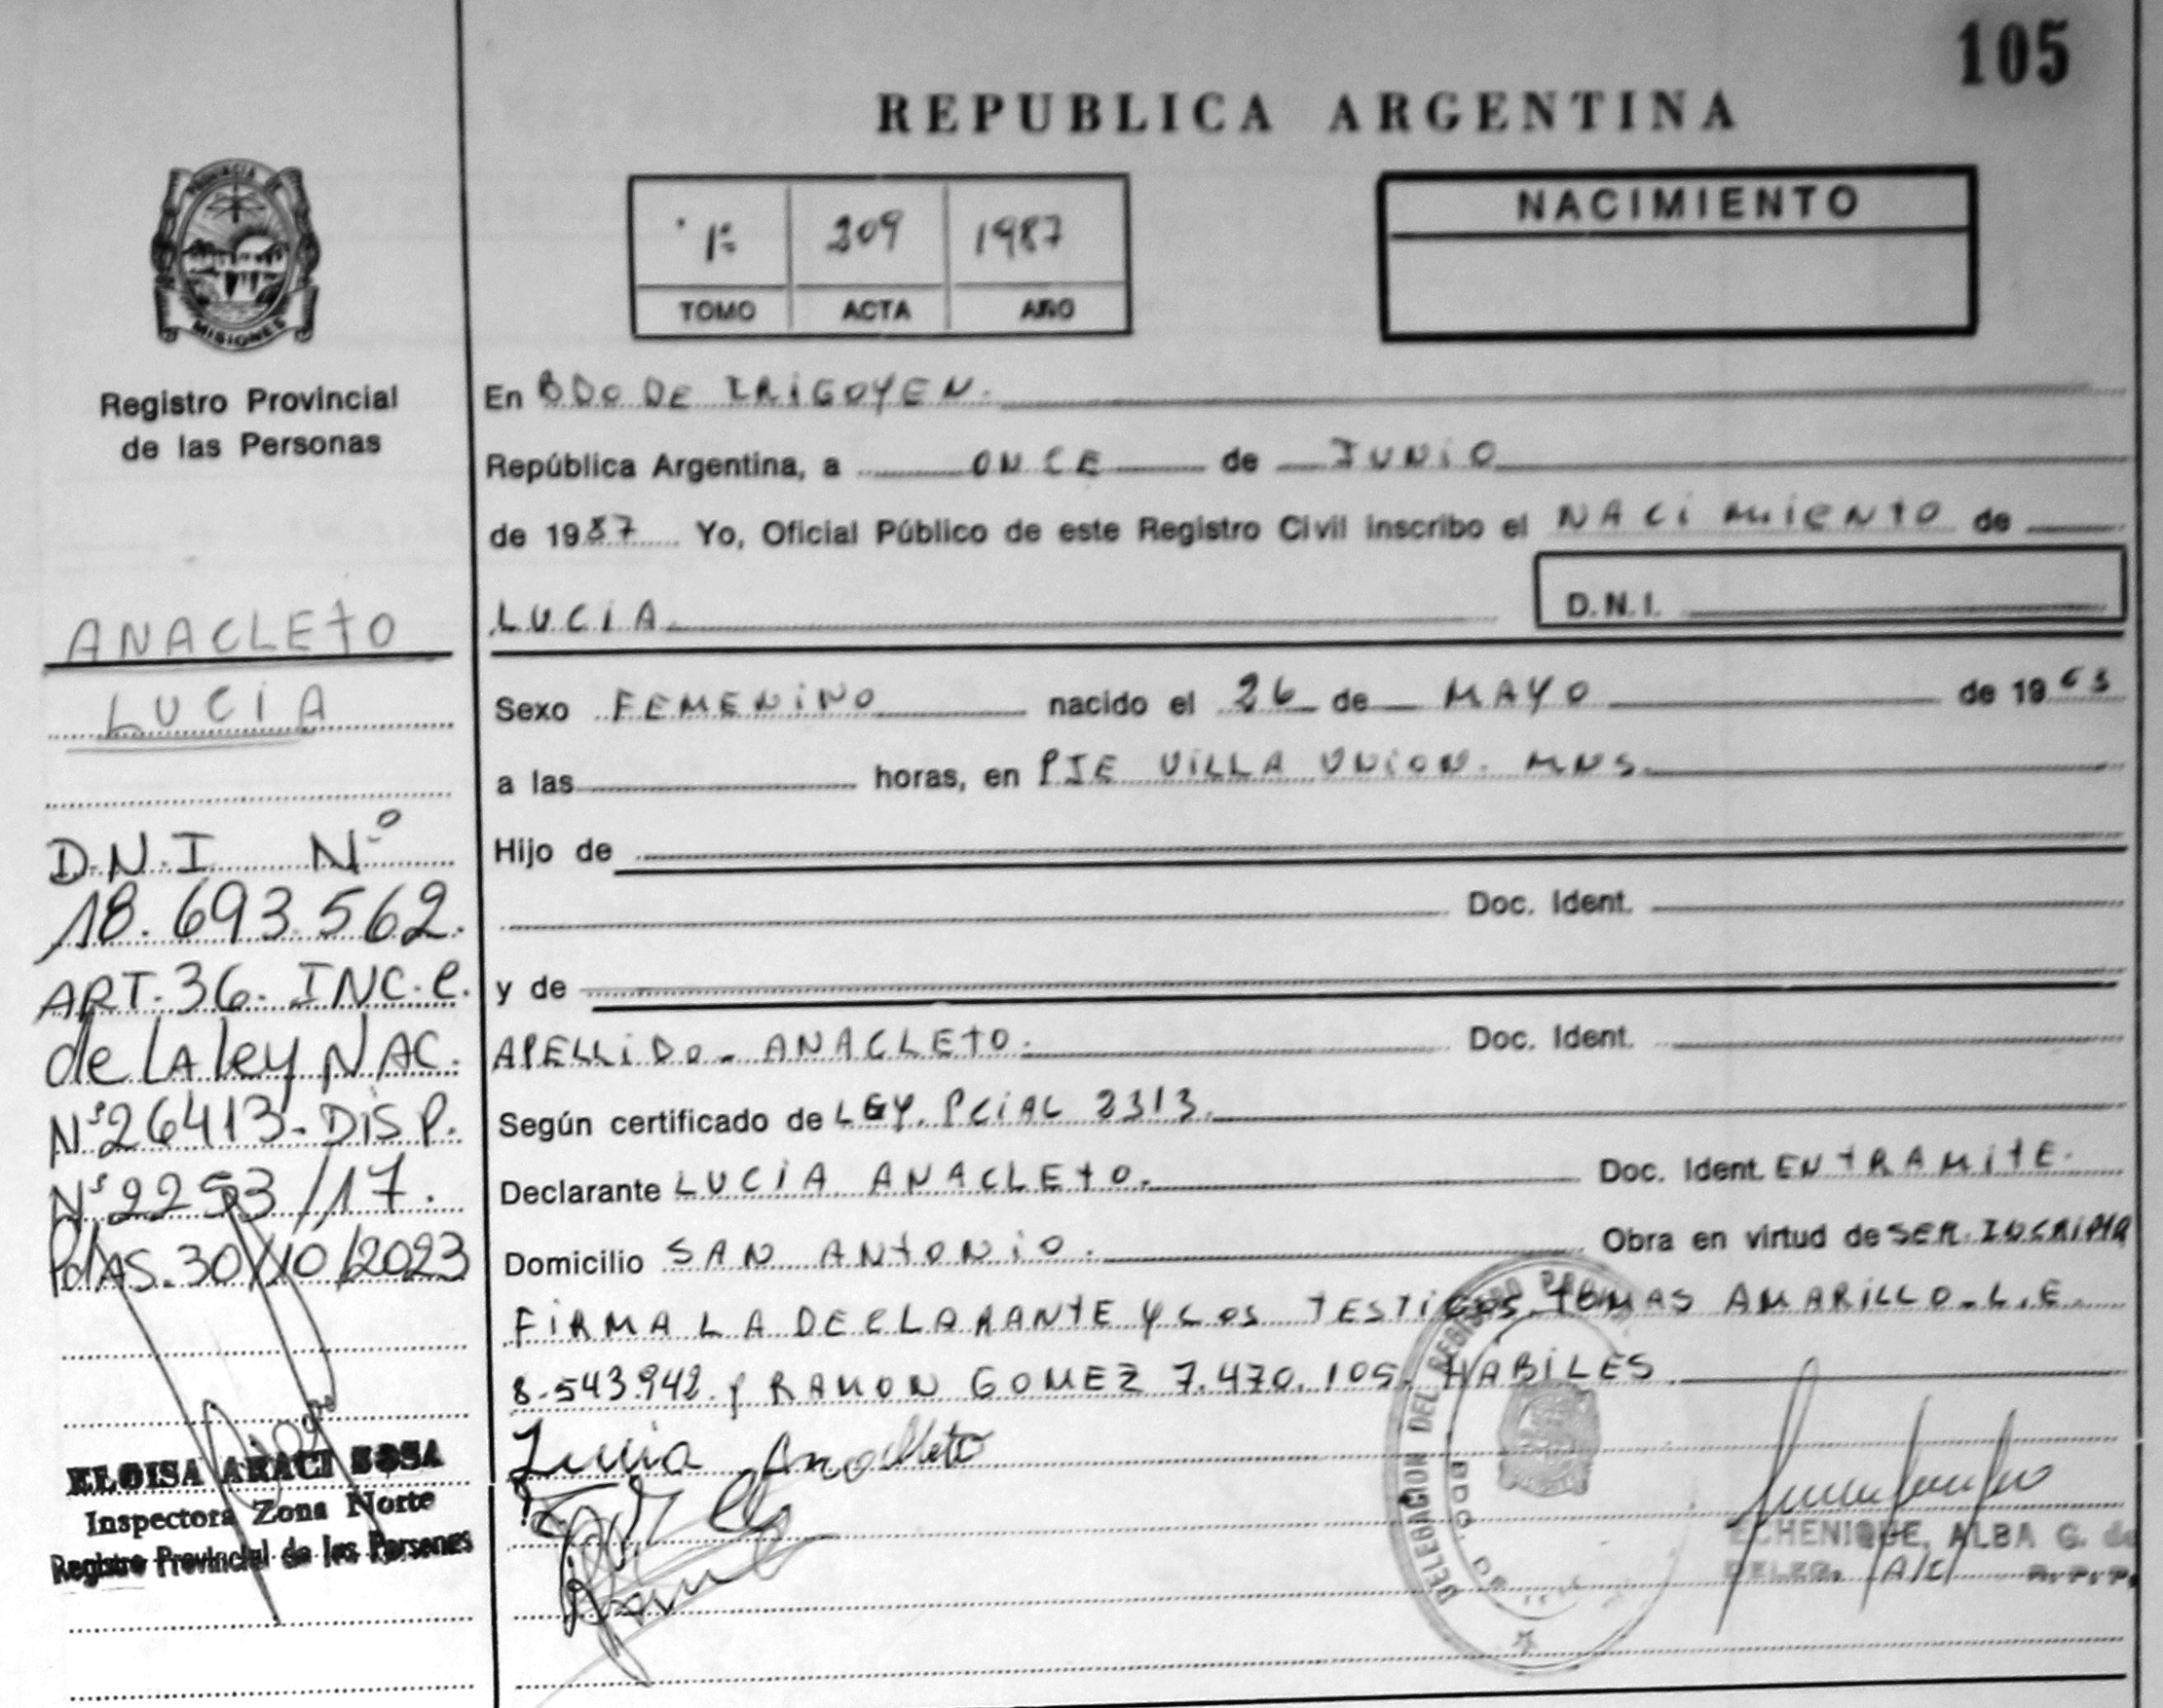 105
REPUBLICA ARGENTINA
PROVINCIA DE
MISIONES
Registro Provincial
de las Personas
ANACLETO
LUCIA
D.N.I Nº
18.693.562.
ART. 36. INC. C.
de LA ley NAC.
Nº 26413- DISP.
Nº 2253/17.
PdAS. 30/10/2023
ELOISA ARACI SOSA
Inspectora Zona Norte
Registro Provincial de las Personas
1º 209 1987
TOMO ACTA AÑO
NACIMIENTO
En BDO DE IRIGOYEN.
República Argentina, a ONCE de JUNIO
de 1987 Yo, Oficial Público de este Registro Civil inscribo el NACIMIENTO de
LUCIA D.N.I.
Sexo FEMENINO nacido el 26 de MAYO de 1963
a las horas, en PJE VILLA UNION. MNS.
Hijo de
Doc. Ident.
y de
APELLIDO - ANACLETO. Doc. Ident.
Según certificado de LEY. PCIAL 2313.
Declarante LUCIA ANACLETO. Doc. Ident. EN TRAMITE.
Domicilio SAN ANTONIO. Obra en virtud de SER
FIRMA LA DECLARANTE Y LOS TESTIGOS TOMAS AMARILLO - L.E.
8.543.942 y RAMON GOMEZ 7.470.105. HABILES
Lucia Anacleto
DELEGACION DEL REGISTRO
BDO. DE
ECHENIQUE, ALBA G. de
DELEG. A/C R.P.P.